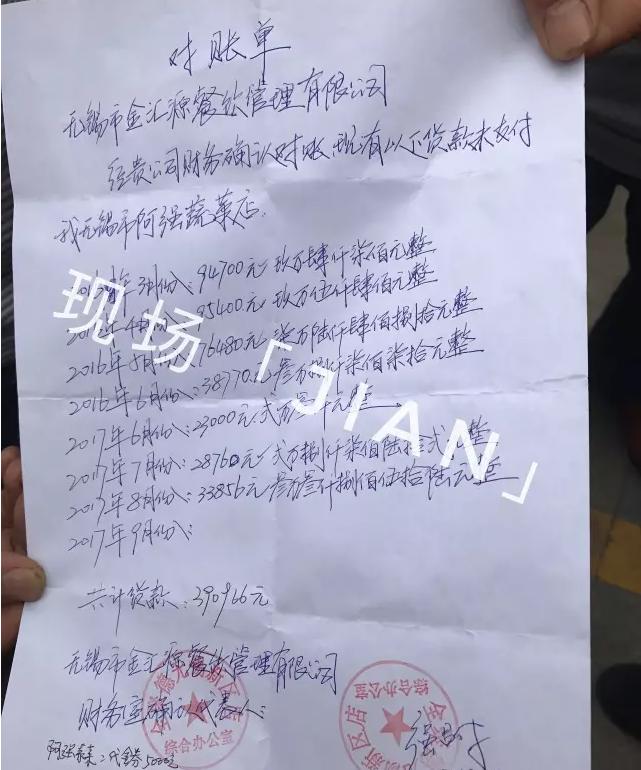 对账单
无锡市金汇源餐饮管理有限公司
经贵公司财务确认对账,现有以下货款未支付
我无锡市阿强蔬菜店.
年3月份:94700元 玖万肆仟柒佰元整
95400元 玖万伍仟肆佰元整
2016年5月份:76480元 柒万陆仟肆佰捌拾元整
2016年6月份:38770元 叁万捌仟柒佰柒拾元整
2017年6月份:23000元 元整
2017年7月份:28760元 万捌仟柒佰陆拾 整
2017年8月份:33856元 叁万叁仟捌佰伍拾陆元整
2017年9月份:
现场「JIAN」
共计货款:390966元
无锡市金汇源餐饮管理有限公司
财务室确认代表人:
综合办公室
综合办公室
新区店